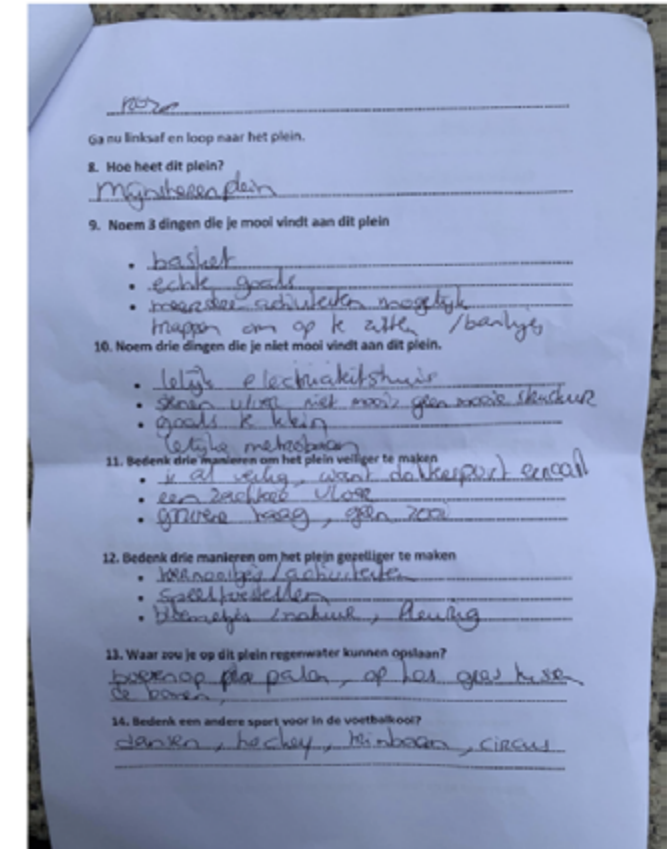 Ga nu linksaf en loop naar het plein.
8. Hoe heet dit plein?
Mijnsherenplein
9. Noem 3 dingen die je mooi vindt aan dit plein
• basket
• echte goals
• meerdere activiteiten mogelijk
trappen om op te zitten /bankjes
10. Noem drie dingen die je niet mooi vindt aan dit plein.
• lelijk electriciteitshuis
• stenen vloer niet mooi, geen mooie structuur
• goals te klein
lelijke metrobaan
11. Bedenk drie manieren om het plein veiliger te maken
• is al veilig, want
• een zachtere vloer
• groene haag, geen zooi
12. Bedenk drie manieren om het plein gezelliger te maken
• toernooitjes /activiteiten
• speeltoestellen
• bloemetjes /natuur, kleurig
13. Waar zou je op dit plein regenwater kunnen opslaan?
bovenop palen, op het gras tussen
de bomen,
14. Bedenk een andere sport voor in de voetbalkooi?
dansen, hockey, , circus